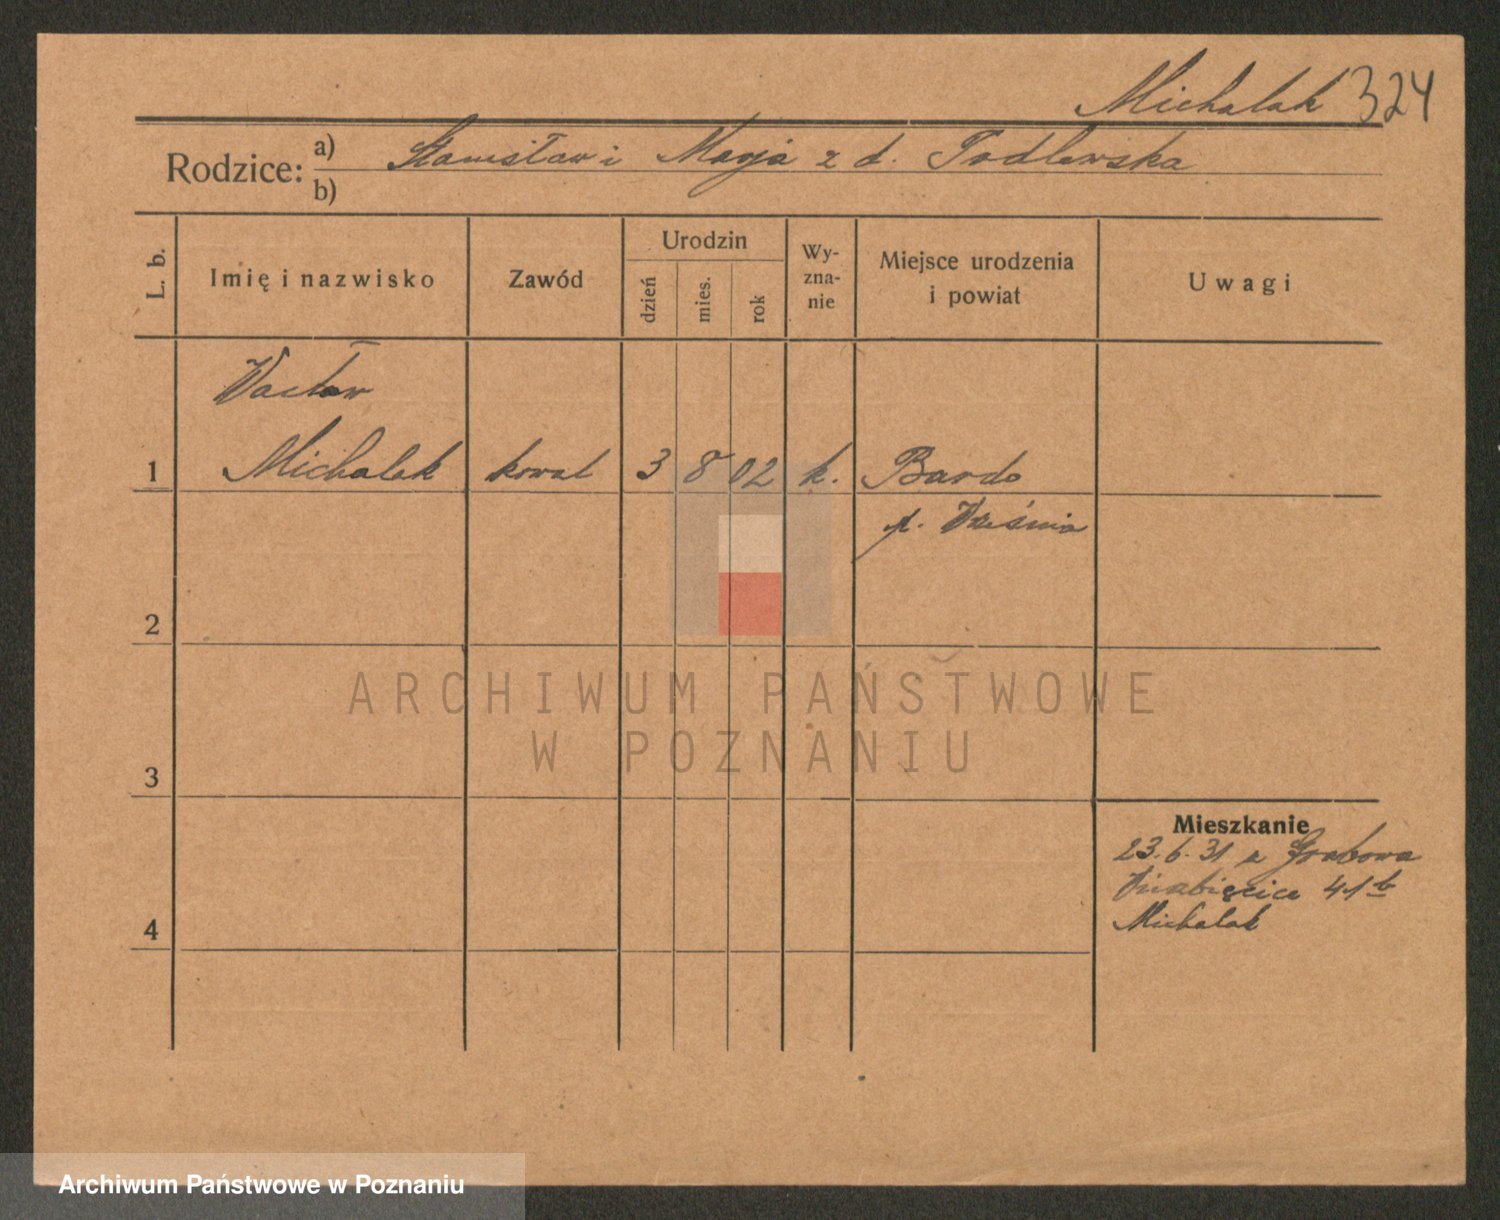 Michalak 324
Rodzice: a) Stanisław i Marja z d. Podlewska
b)
L. b.
Imię i nazwisko
Zawód
Urodzin
dzień
mies.
rok
Wy-
zna-
nie
Miejsce urodzenia
i powiat
Uwagi
Wacław
1 Michalak kowal 3 8 02 k. Bardo
p. Września
2
3
4
Mieszkanie
23.6.31 z Grabowa
41b
Michalak
ARCHIWUM PAŃSTWOWE
W POZNANIU
Archiwum Państwowe w Poznaniu